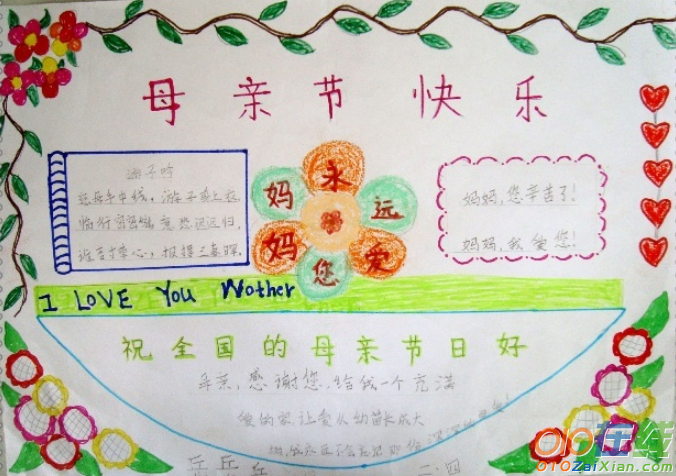 母亲节快乐
游子吟
慈母手中线,游子身上衣
临行密密缝,意恐迟迟归,
谁言寸草心,报得三春晖。
永远爱您妈妈
妈妈,您辛苦了!
妈妈,我爱您!
I LOVE You Wother
祝全国的母亲节日好
母亲,感谢您.给我一个充满
爱的家,让我从幼苗长成大
010在线
010ZaiXian.com